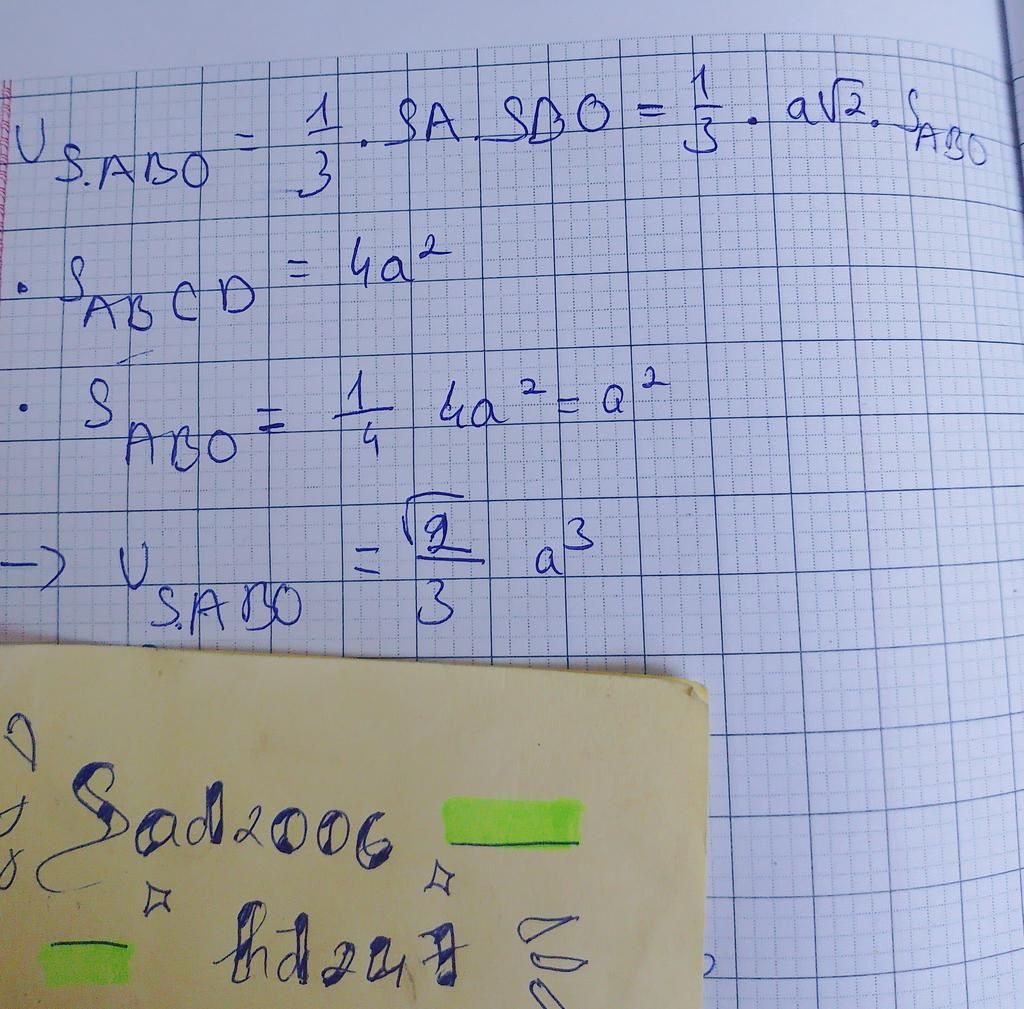 V S.ABO = 1/3 . SA . SBO = 1/3 . a√2 . S ABO
. S ABCD = 4a²
. S ABO = 1/4 4a² = a²
→ V S.ABO = √2/3 a³
Sad2006
hd247